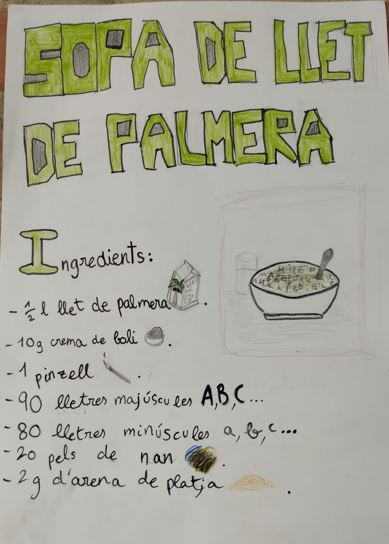 SOPA DE LLET
DE PALMERA
Ingredients:
- ½ l llet de palmera.
- 10g crema de boli.
- 1 pinzell.
- 90 lletres majúscules A,B,C...
- 80 lletres minúscules a,b,c...
- 20 pels de nan.
- 2g d'arena de platja.